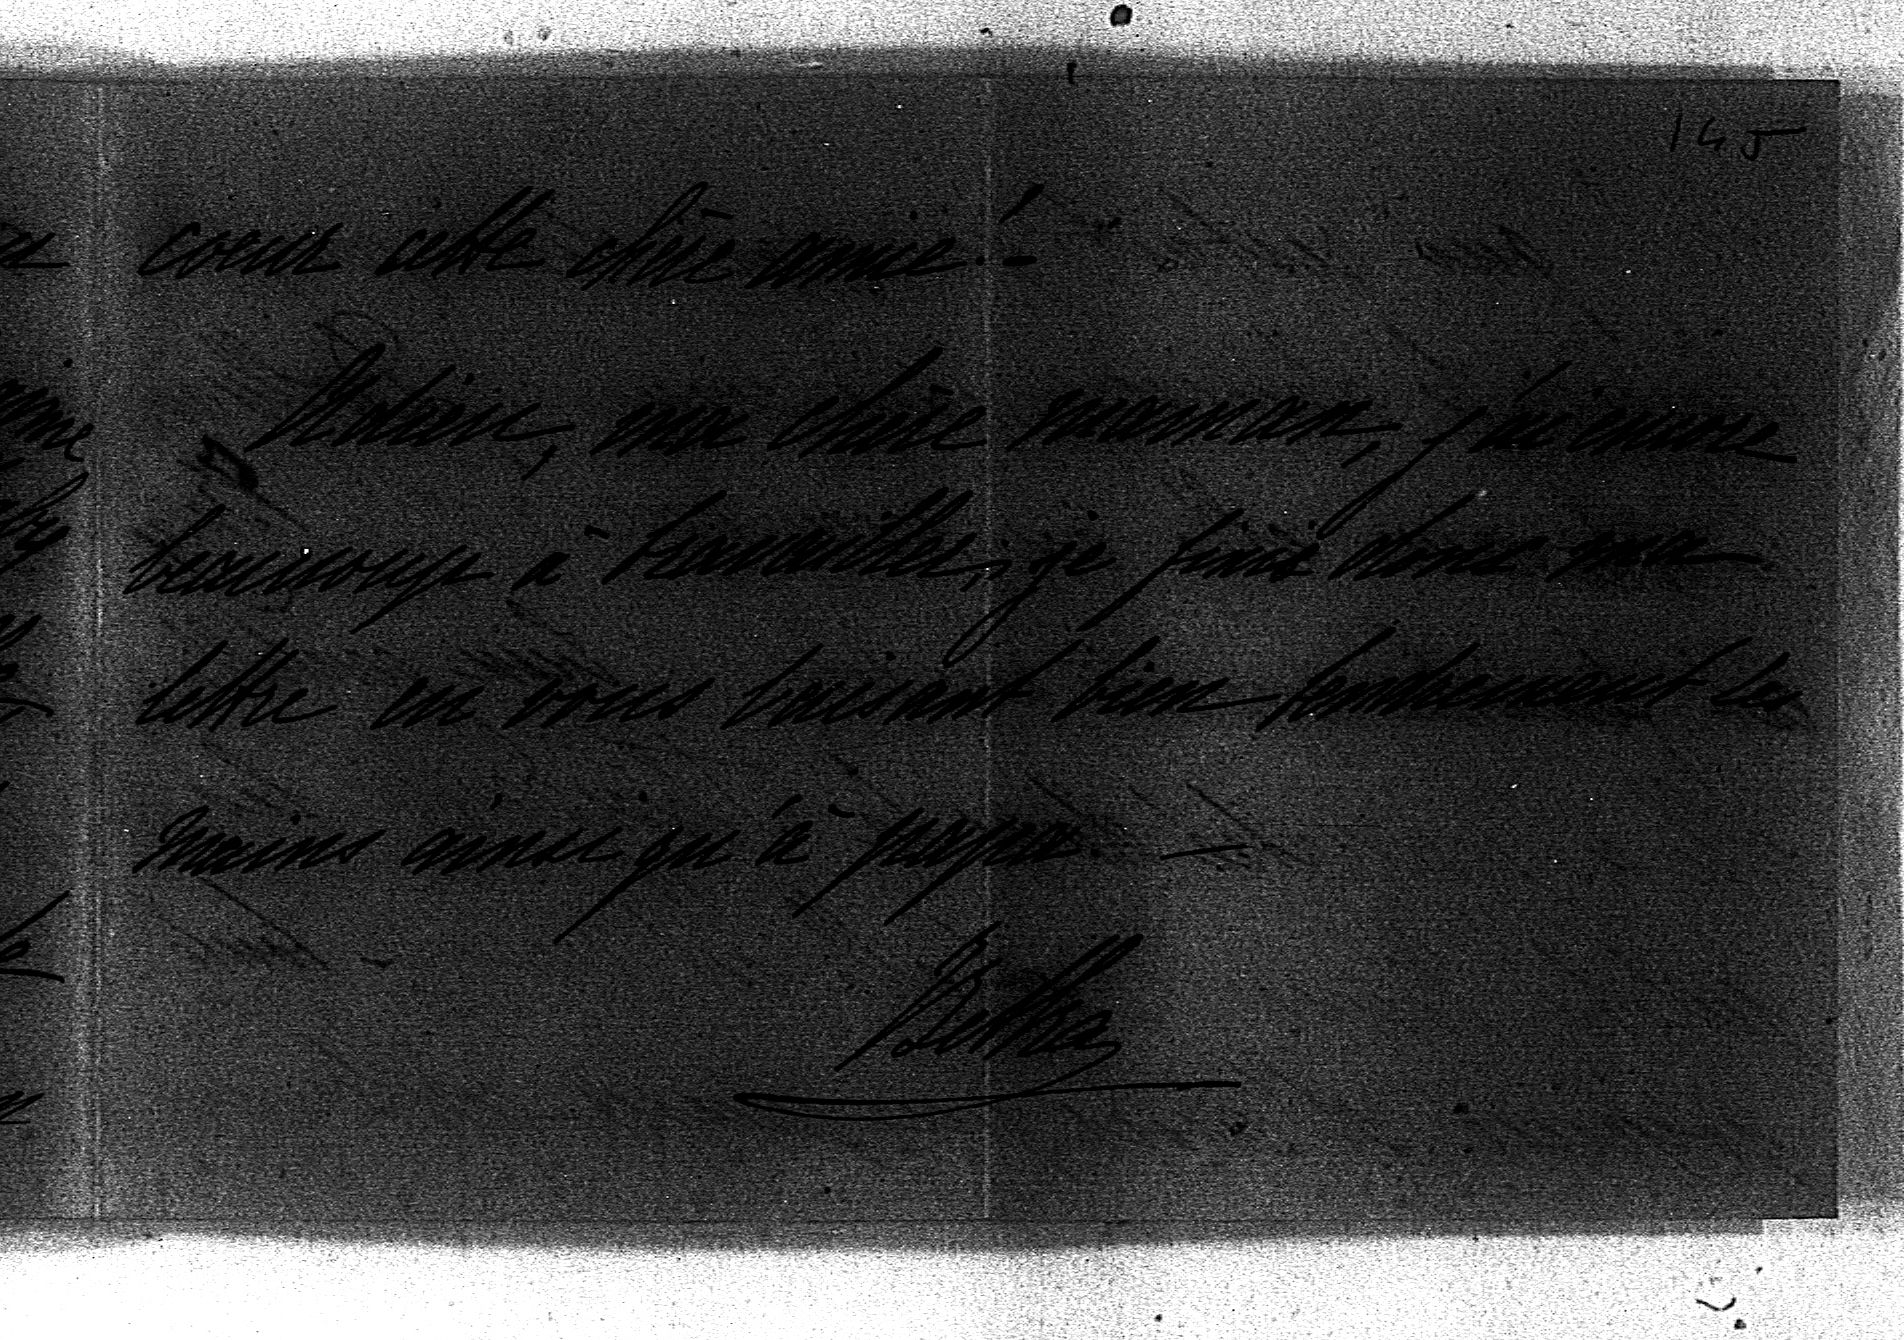 145
coeur cette chère amie! –
Adieu, ma chère maman, j'ai encore
beaucoup à travailler; je finis donc ma
lettre en vous baisant bien tendrement les
mains ainsi qu'à papa. —
Betka